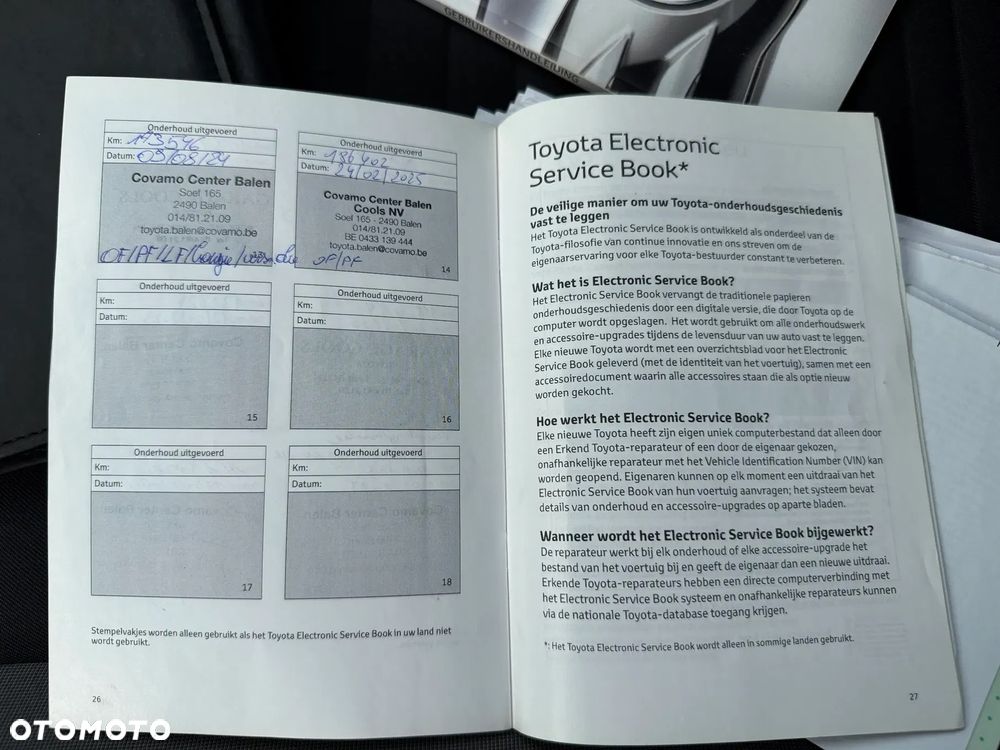 GEBRUIKERSHANDLEIDING
Onderhoud uitgevoerd
Km: 173546
Datum: 09/08/24
Covamo Center Balen
Soel 165
2490 Balen
014/81.21.09
toyota.balen@covamo.be
OF/PF/LF/
Onderhoud uitgevoerd
Km: 186402
Datum: 24/02/2025
Covamo Center Balen
Cools NV
Soel 165 - 2490 Balen
014/81.21.09
BE 0433 139 444
toyota.balen@covamo.be
OF/PF
14
Onderhoud uitgevoerd
Km:
Datum:
15
Onderhoud uitgevoerd
Km:
Datum:
16
Onderhoud uitgevoerd
Km:
Datum:
17
Onderhoud uitgevoerd
Km:
Datum:
18
Stempelvakjes worden alleen gebruikt als het Toyota Electronic Service Book in uw land niet
wordt gebruikt.
26
Toyota Electronic
Service Book*
De veilige manier om uw Toyota-onderhoudsgeschiedenis
vast te leggen
Het Toyota Electronic Service Book is ontwikkeld als onderdeel van de
Toyota-filosofie van continue innovatie en ons streven om de
eigenaarservaring voor elke Toyota-bestuurder constant te verbeteren.
Wat het is Electronic Service Book?
Het Electronic Service Book vervangt de traditionele papieren
onderhoudsgeschiedenis door een digitale versie, die door Toyota op de
computer wordt opgeslagen. Het wordt gebruikt om alle onderhoudswerk
en accessoire-upgrades tijdens de levensduur van uw auto vast te leggen.
Elke nieuwe Toyota wordt met een overzichtsblad voor het Electronic
Service Book geleverd (met de identiteit van het voertuig), samen met een
accessoiredocument waarin alle accessoires staan die als optie nieuw
worden gekocht.
Hoe werkt het Electronic Service Book?
Elke nieuwe Toyota heeft zijn eigen uniek computerbestand dat alleen door
een Erkend Toyota-reparateur of een door de eigenaar gekozen,
onafhankelijke reparateur met het Vehicle Identification Number (VIN) kan
worden geopend. Eigenaren kunnen op elk moment een uitdraai van het
Electronic Service Book van hun voertuig aanvragen; het systeem bevat
details van onderhoud en accessoire-upgrades op aparte bladen.
Wanneer wordt het Electronic Service Book bijgewerkt?
De reparateur werkt bij elk onderhoud of elke accessoire-upgrade het
bestand van het voertuig bij en geeft de eigenaar dan een nieuwe uitdraai.
Erkende Toyota-reparateurs hebben een directe computerverbinding met
het Electronic Service Book systeem en onafhankelijke reparateurs kunnen
via de nationale Toyota-database toegang krijgen.
*: Het Toyota Electronic Service Book wordt alleen in sommige landen gebruikt.
27
OTOMOTO